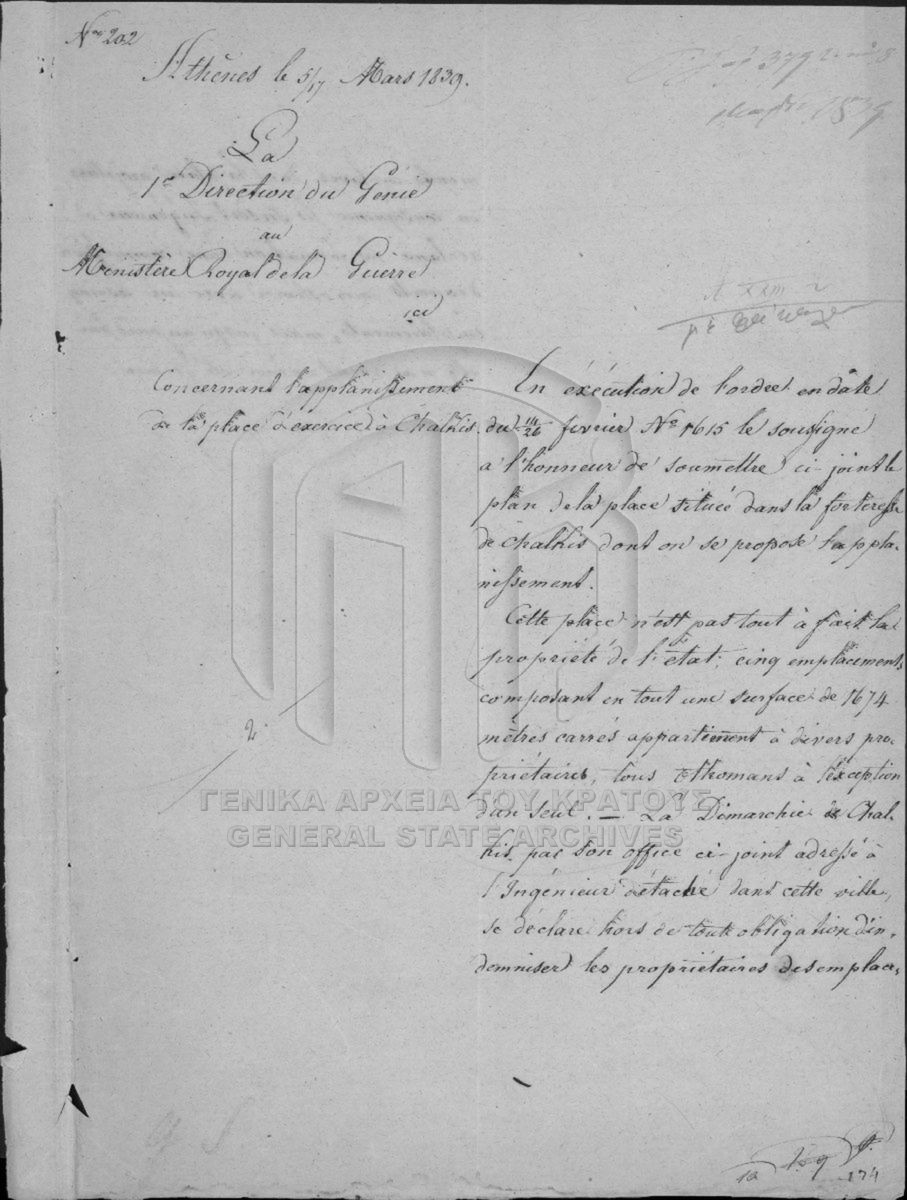 Nro 202
Athènes le 5/17 Mars 1839.
La
1e Direction du Génie
au
Ministère Royal de la Guerre
ici
Concernant l'applanissement
de la place d'exercice à Chalkis.
En éxécution de l'ordre en date
du 14/26 fevrier No 1615 le soussigné
a l'honneur de soumettre ci-joint le
plan de la place située dans la forteresse
de Chalkis dont on se propose l'appla-
nissement.
Cette place n'est pas tout à fait la
propriété de l'état; cinq emplacements
composant en tout une surface de 1674
mètres carrés appartiennent à divers pro-
priétaires, tous Othomans à l'éxception
d'un seul. — La Dimarchie de Chal-
kis par son office ci-joint adressé à
l'Ingénieur détaché dans cette ville,
se déclare hors de toute obligation d'in-
demniser les propriétaires des emplace-
2
ΓΕΝΙΚΑ ΑΡΧΕΙΑ ΤΟΥ ΚΡΑΤΟΥΣ
GENERAL STATE ARCHIVES
174